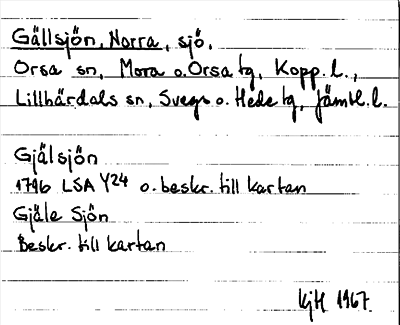 Gällsjön, Norra, sjö,
Orsa sn, Mora o. Orsa tg, Kopp. l.,
Lillhärdals sn, Svegs o. Hede tg, Jämtl. l.
Gjälsjön
1796 LSA Y24 o. beskr. till kartan
Gjäle Sjön
Beskr. till kartan
KjH 1967.